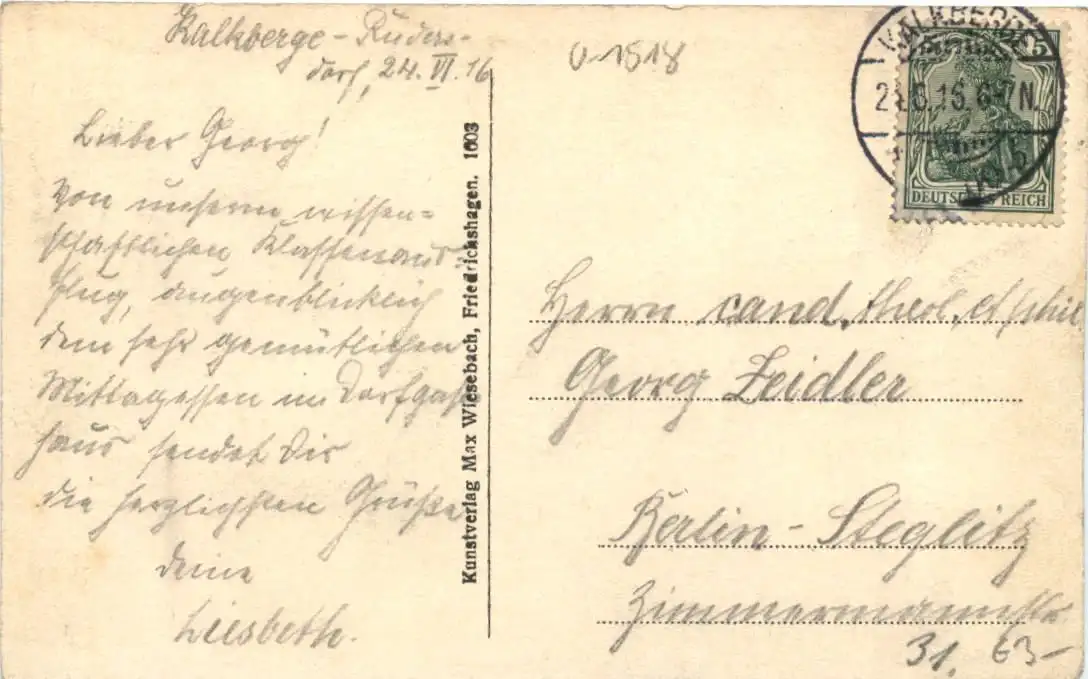 Kalkberge-Rüders-
dorf, 24. VI. 16
Lieber Georg!
Von unserm wissen-
schaftlichen Klassenaus-
flug, augenblicklich
dem sehr gemütlichen
Mittagessen im Dorfgast-
haus sendet Dir
die herzlichsten Grüße
deine
Liesbeth.
Kunstverlag Max Wiesebach, Friedrichshagen. 1603
U-1518
KALKBERGE
6-7N.
5
DEUTSCHES REICH
Herrn cand. theol. et phil
Georg Zeidler
Berlin-Steglitz
Zimmermannstr.
31. 63-